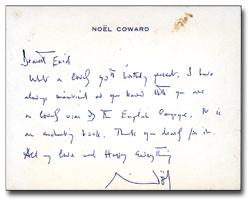 NOËL COWARD
Dearest Enid
What a lovely birthday present. I have
always as you know that you are
a lovely of The English Language. It is
an enchanting book. Thank you for it.
All my love and Happy Everything
Noël